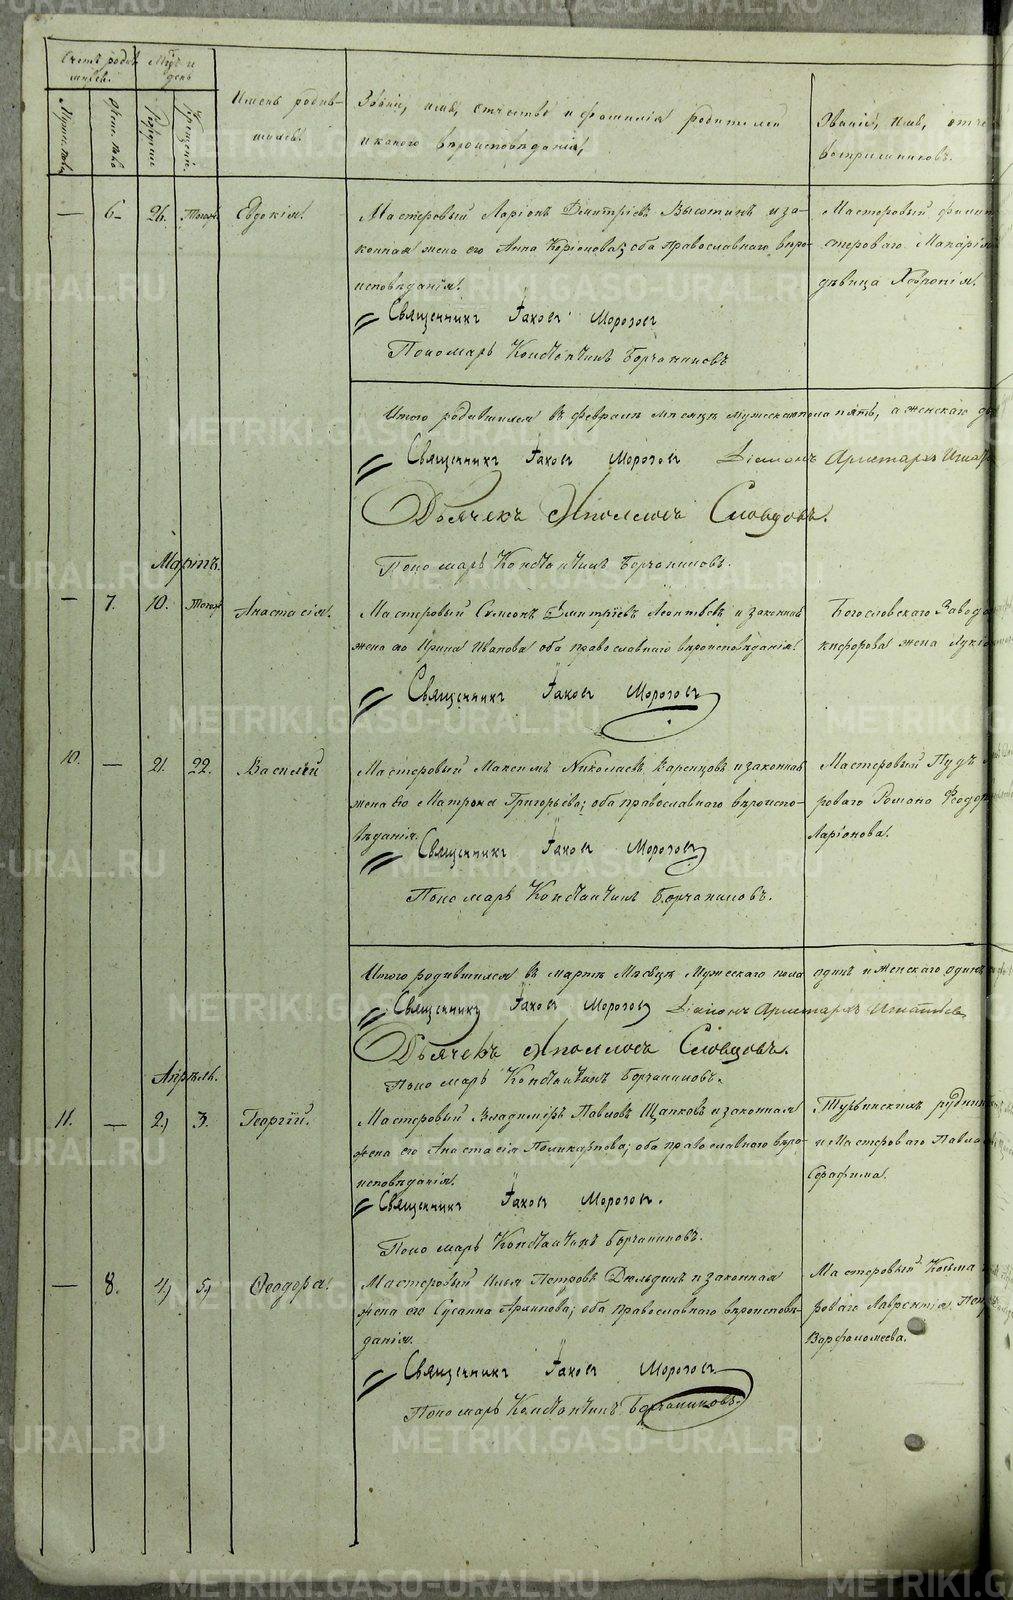 Счетъ родив-
шихся.
Мѣс. и
день
Мужеска
женска
Рожденія
Крещенія.
Имена родив-
шихся.
Званіе, имя, отчество и фамилія родителей
и какого вѣроисповѣданія,
Званіе, имя, отче
воспріемниковъ.
— 6 26. Тогожъ Евдокія.
Мастеровый Ларіонъ Дмитріевъ Высотинъ и за-
конная жена его Анна; оба православнаго вѣро-
исповѣданія.
Мастеровый Филип
стероваго Макарія
дѣвица Хевронія.
Священникъ Іаковъ Морозовъ
Пономарь Константинъ Борчаниновъ
Итого родившихся въ февралѣ мѣсяцѣ мужеска пола пять, а женскаго
Священникъ Іаковъ Морозовъ Діаконъ Аристархъ Игнат
Дьячекъ Аполлосъ Словцовъ.
Пономарь Константинъ Борчаниновъ.
Мартъ.
— 7. 10. Тогожъ Анастасія.
Мастеровый Симеонъ Дмитріевъ Леонтьевъ и законная
жена его Ирина Иванова оба православнаго вѣроисповѣданія.
Богословскаго Завода
кифорова жена Лукі
Священникъ Іаковъ Морозовъ
10. — 21. 22. Василій
Мастеровый Максимъ Николаевъ и законная
жена Его Матрона Григорьева; оба православнаго вѣроиспо-
вѣданія.
Мастеровый Пудъ
роваго Романа Феодор
Ларіонова.
Священникъ Іаковъ Морозовъ
Пономарь Константинъ Борчаниновъ.
Итого родившихся въ мартѣ Мѣсяцѣ Мужескаго пола одинъ и женскаго одинъ
Священникъ Іаковъ Морозовъ Діаконъ Аристархъ Игнатіев
Дьячекъ Аполлосъ Словцовъ.
Пономарь Константинъ Борчаниновъ.
Апрѣль.
11. — 2, 3. Георгій.
Мастеровый Владиміръ Павловъ Щапковъ и законная
жена его Анастасія Поликарпова; оба православнаго вѣро-
исповѣданія.
Турьинскихъ рудник
и Мастероваго Павла
Серафима.
Священникъ Іаковъ Морозовъ.
Пономарь Константинъ Борчаниновъ.
— 8. 4, 5, Ѳеодора.
Мастеровый Илья Петровъ Дюльдинъ и законная
жена его Сусанна Архипова; оба православнаго вѣроисповѣ-
данія.
Мастеровый Козьма
роваго Лаврентія Пет
Варфоломеева.
Священникъ Іаковъ Морозовъ
Пономарь Константинъ Борчаниновъ.
METRIKI.GASO-URAL.RU